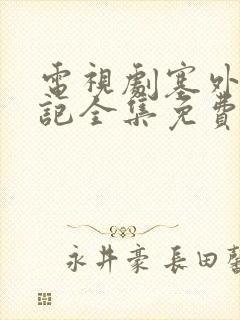 電視劇塞外
記全集免費
永井豪 長田馨